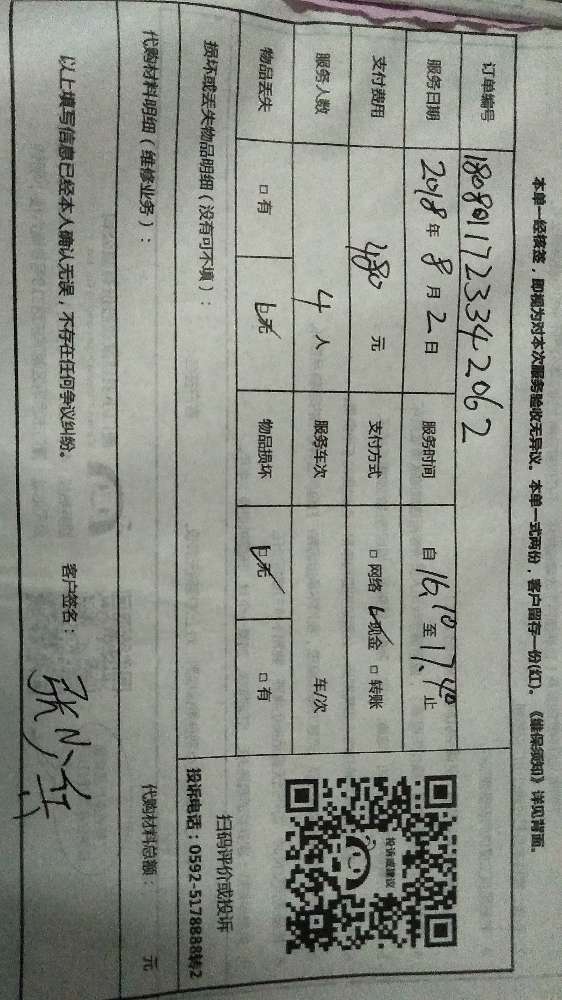 本单一经核签，即视为对本次服务验收无异议。本单一式两份，客户留存一份(红)。《维保须知》详见背面。
订单编号 1808011723342062
服务日期 2018年8月2日 服务时间 自16.10至17.40止
支付费用 480元 支付方式 □网络 ☑现金 □转账
服务人数 4人 服务车次 车/次
物品丢失 □有 ☑无 物品损坏 ☑无 □有
损坏或丢失物品明细（没有可不填）：
投诉或建议
扫码评价或投诉
投诉电话：0592-5178888转2
代购材料明细（维修业务）： 代购材料总额： 元
以上填写信息已经本人确认无误，不存在任何争议纠纷。 客户签名：